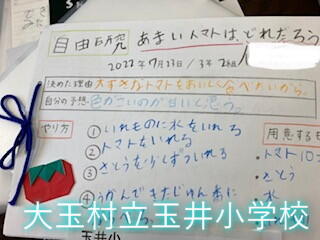 自由研究 あまいトマトは、どれだろう
2022年7月23日/3年2組
決めた理由 大すきなトマトをおいしく食べたいから。
自分の予想 色がこいのが甘いと思う。
やり方
用意するもの
① いれものに水をいれる
② トマトをいれる
③ さとうを少しずついれる
④ うかんできたじゅん番に
・トマト10コ
・さとう
・水
大玉村立玉井小学校
玉井小